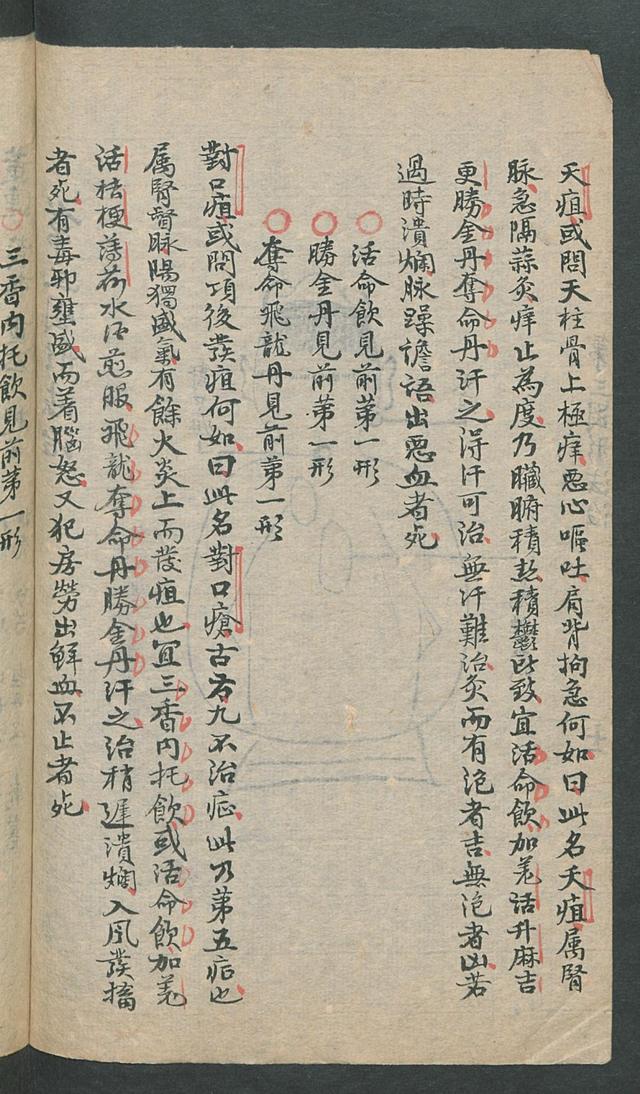 夭疽或問天柱骨上極痒惡心嘔吐肩背拘急何如曰此名夭疽属腎
脉急隔蒜灸痒止為度乃臟腑積熱積鬱所致宜活命飲加羌活升麻吉
更勝金丹奪命丹汗之得汗可治無汗難治灸而有泡者吉無泡者凶若
過時潰爛脉躁譫語出惡血者死
○活命飲見前第一形
○勝金丹見前第一形
○奪命飛龍丹見前第一形
對口疽或問項後發疽何如曰此名對口瘡古方九不治症此乃第五症也
属腎督脉陽獨盛氣有餘火炎上而發疽也宜三香內托飲或活命飲加羌
活桔梗薄荷水酒煎服飛龍奪命丹勝金丹汗之治稍遲潰爛入風發搐
者死有毒邪壅盛而着腦怒又犯房勞出鮮血不止者死
○三香內托飲見前第一形